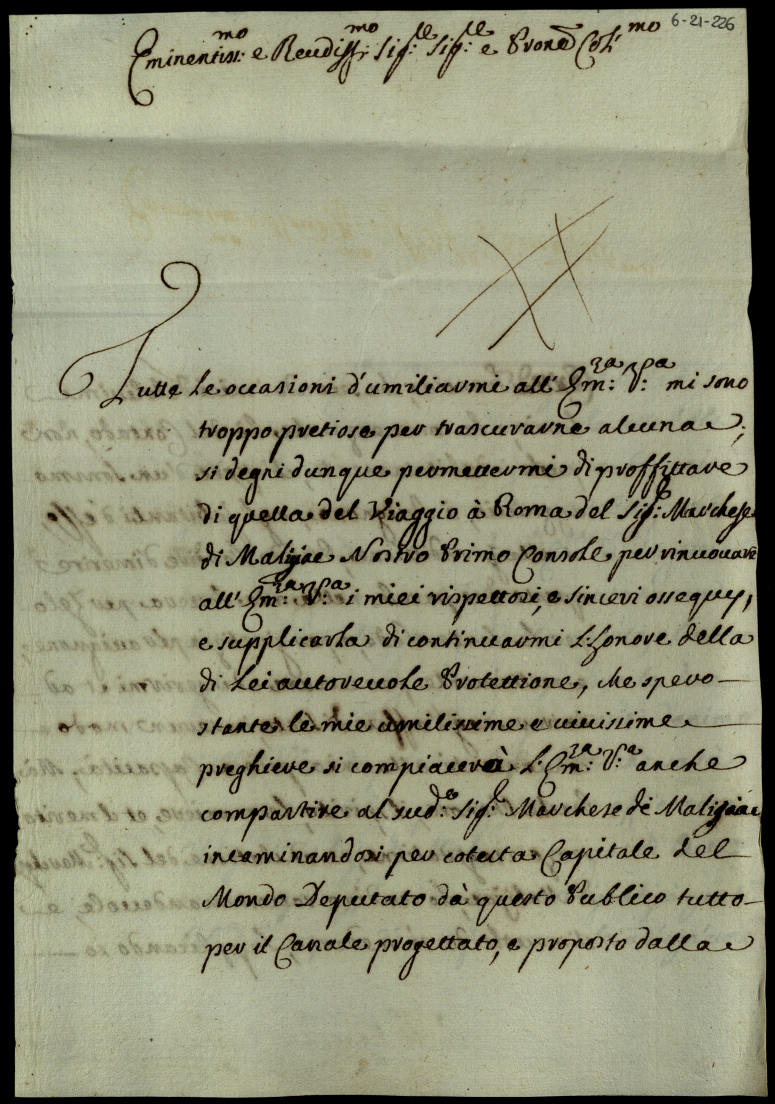 6-21-226
Eminentiss:mo e Reudiss:mo Sig:re Sig:re e Prone Col:mo
Tutte le occasioni d'umiliarmi all' Em:za V:ra mi sono
troppo pretiose per trascurarne alcuna;
si degni dunque permettermi di proffittare
di quella del Viaggio à Roma del Sig:r Marchese
di Malijac Nostro Primo Console per rinuovare
all' Em:za V:ra i miei rispettosi, e sinceri ossequy,
e supplicarla di continuarmi l'honore della
di Lei autoreuole Protettione, che spero
stante le mie umilissime e viuissime
preghiere si compiacerà l'Em:za V:ra anche
compartire al sud:o Sig:r Marchese de Malijiac
incaminandosi per cotesta Capitale del
Mondo Deputato dà questo Publico tutto
per il Canale progettato, e proposto dalla